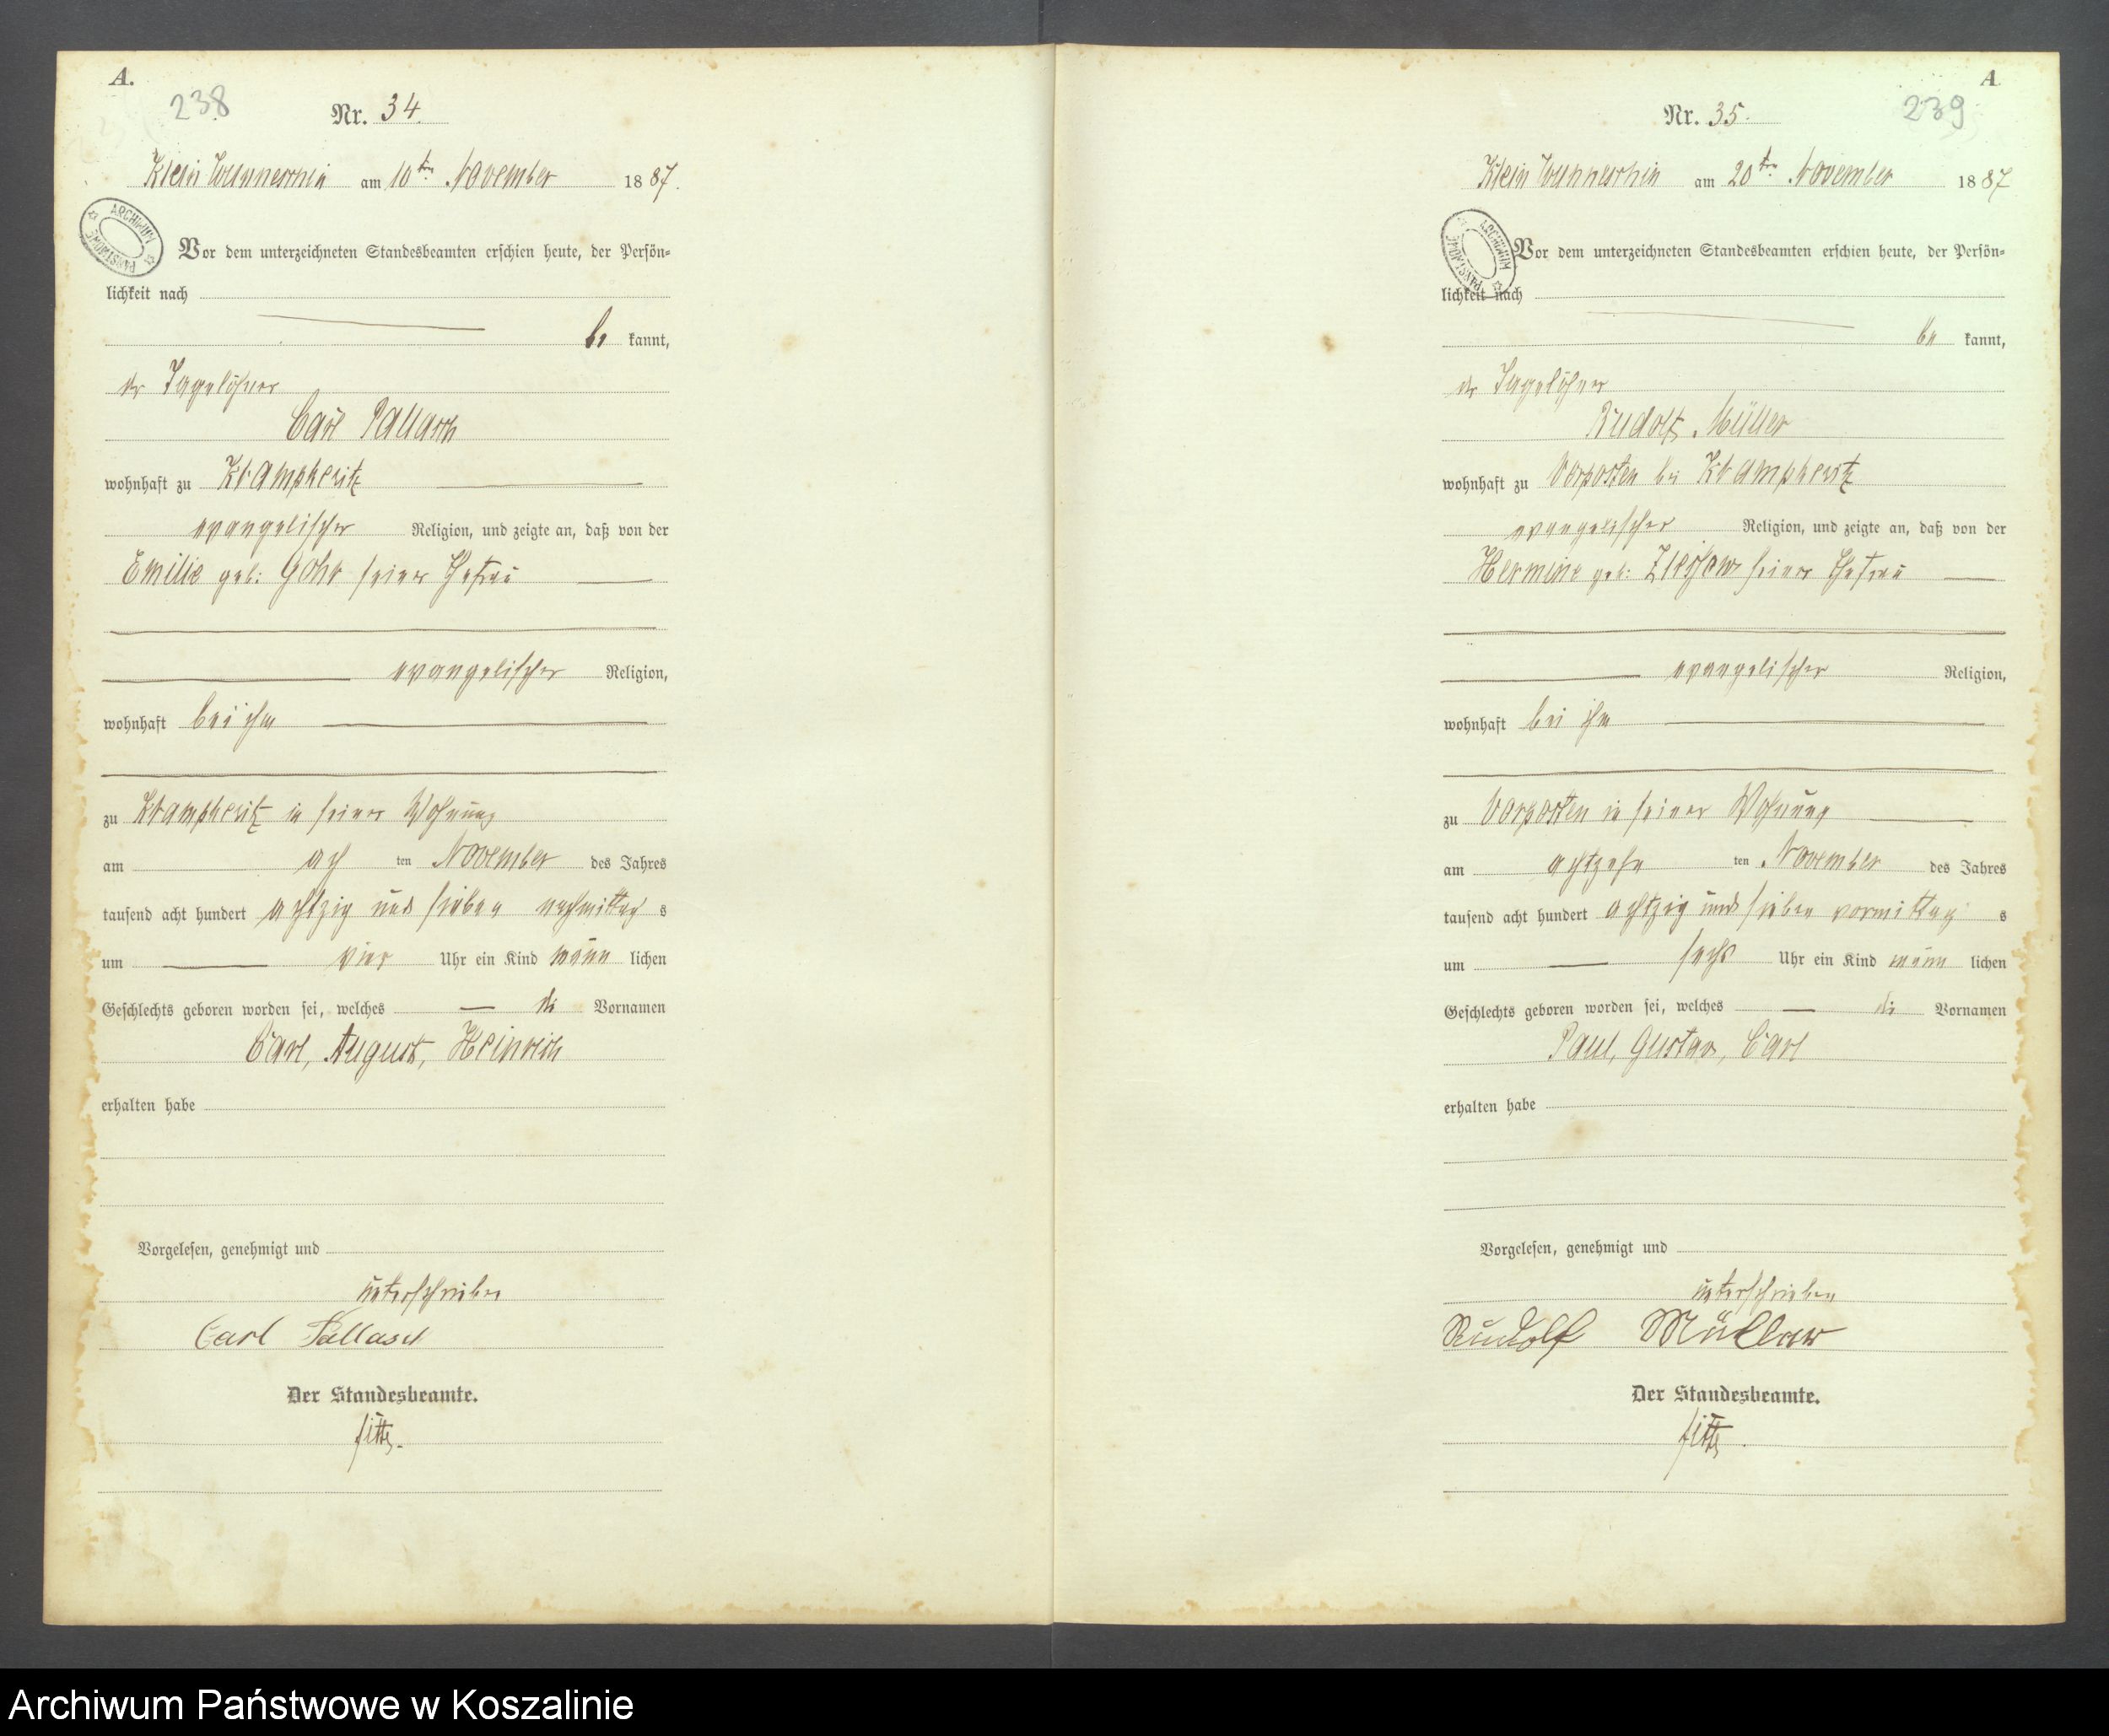 A.
238
Nr. 34.
Klein Wunneschin am 10ten November 1887.
ARCHIWUM PAŃSTWOWE
Vor dem unterzeichneten Standesbeamten erschien heute, der Persön=
lichkeit nach
be kannt,
der Tagelöhner
Carl Pallasch
wohnhaft zu Krampkewitz
evangelischer Religion, und zeigte an, daß von der
Emilie geb: Gohr seiner Ehefrau
evangelischer Religion,
wohnhaft bei ihm
zu Krampkewitz in seiner Wohnung
am ach ten November des Jahres
tausend acht hundert achtzig und sieben nachmittag s
um vier Uhr ein Kind männ lichen
Geschlechts geboren worden sei, welches die Vornamen
Carl, August, Heinrich
erhalten habe
Vorgelesen, genehmigt und
unterschrieben
Carl Pallasch
Der Standesbeamte.
A
239
Nr. 35.
Klein Wunneschin am 20ten November 1887
ARCHIWUM PAŃSTWOWE
Vor dem unterzeichneten Standesbeamten erschien heute, der Persön=
lichkeit nach
be kannt,
der Tagelöhner
Rudolf Müller
wohnhaft zu Vorposten bei Krampkewitz
evangelischer Religion, und zeigte an, daß von der
Hermine geb: seiner Ehefrau
evangelischer Religion,
wohnhaft bei ihm
zu Vorposten in seiner Wohnung
am achtzehn ten November des Jahres
tausend acht hundert achtzig und sieben vormittag s
um sechs Uhr ein Kind männ lichen
Geschlechts geboren worden sei, welches die Vornamen
Paul, Gustav, Carl
erhalten habe
Vorgelesen, genehmigt und
unterschrieben
Rudolf Müller
Der Standesbeamte.
Archiwum Państwowe w Koszalinie